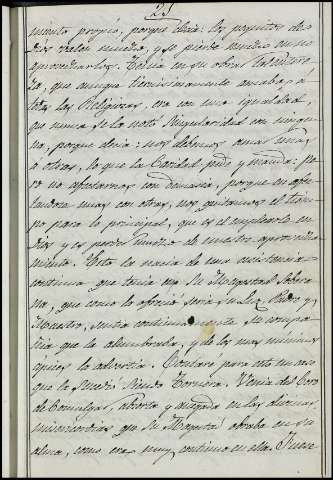 21
miento propio, porque decia: los poquitos de
Dios valen mucho, y se pierde mucho en no
aprovecharlos. Tenia en su obrar tal entere-
za, que aunque tiernisimamente amaba á
todas las Religiosas, era con una igualdad,
que nunca se la notó singularidad con ningu-
na, porque decia: nos debemos amar unas
á otras, lo que la Caridad pide y manda: pe-
ro no apegarnos con demasia, porque en ape-
gandose unas con otras, nos quitamos el tiem-
po para lo principal, que es el emplearlo en
Dios y es perder mucho de nuestro aprovecha-
miento. Esto la nacia de una asistencia
continua que tenia con Su Magestad Sobera-
na, que como la ofrecia seria su Luz, Padre y
Maestro, sentia continuamente su compa-
ñia que la alumbraba, y de los mas minimos
apices la advertia. Contaré para esto un caso
que la sucedió siendo Tornera. Venia del Coro
de Comulgar, absorta y anegada en las divinas
misericordias que Su Magestad obraba en su
alma, como era muy continuo en ella. Fuese